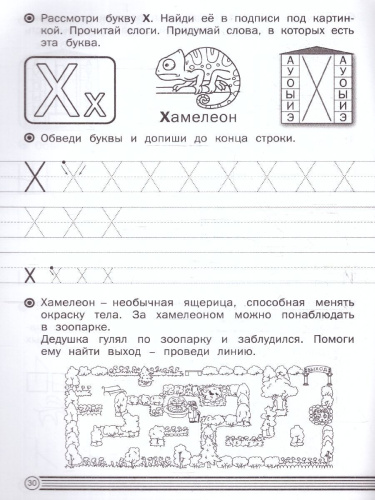 Рассмотри букву Х. Найди её в подписи под картин-
кой. Прочитай слоги. Придумай слова, в которых есть
эта буква.
Х х
Хамелеон
А
У
О
Ы
И
Э
Х
А
У
О
Ы
И
Э
Обведи буквы и допиши до конца строки.
Х Х Х Х Х Х Х Х Х
Х Х Х
х х х х
Хамелеон – необычная ящерица, способная менять
окраску тела. За хамелеоном можно понаблюдать
в зоопарке.
Дедушка гулял по зоопарку и заблудился. Помоги
ему найти выход – проведи линию.
ВЫХОД
30